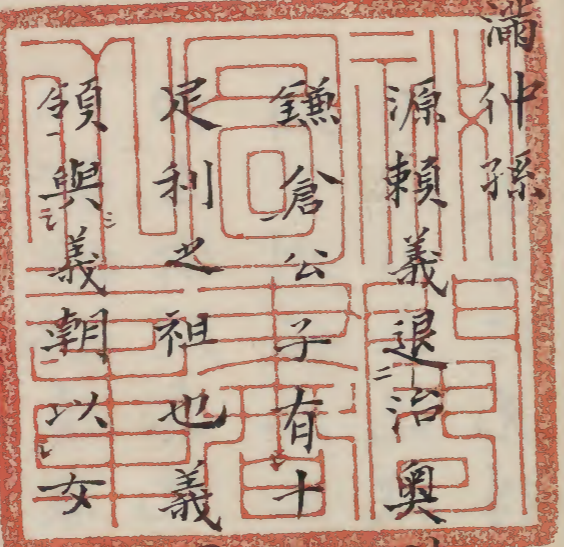 滿仲孫
源頼義退治奥
鎌倉公子有十
足利之祖也義
領與義朝以女